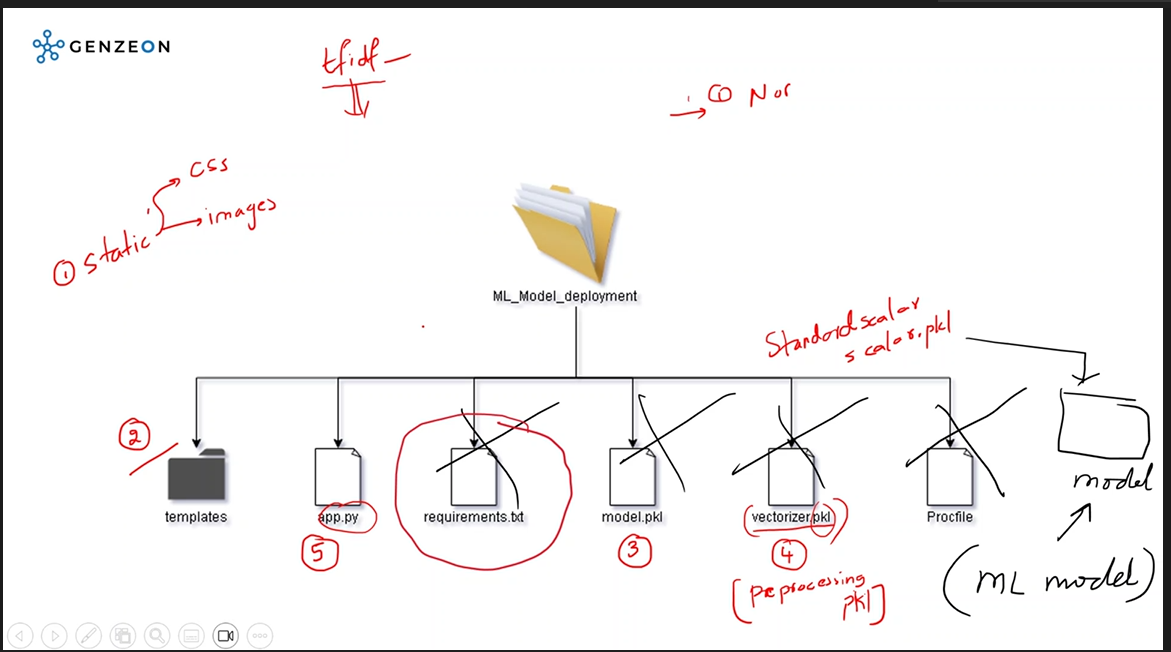 GENZEON
tfidf
Nor
css
images
① static
ML_Model_deployment
Standardscalar
scalar.pkl
②
templates
app.py
requirements.txt
model.pkl
vectorizer.pkl
Procfile
model
⑤
③
④
[preprocessing
pkl]
(ML model)